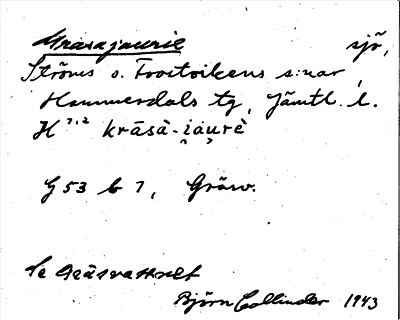 Grasajaurie sjö,
Ströms o. Frostvikens s:nar,
Hammerdals tg, Jämtl. l.
H 7,2 kràsà-i̯au̯rè
G 53 b 7, Gräsv.
Se Gräsvattnet
Björn Collinder 1943